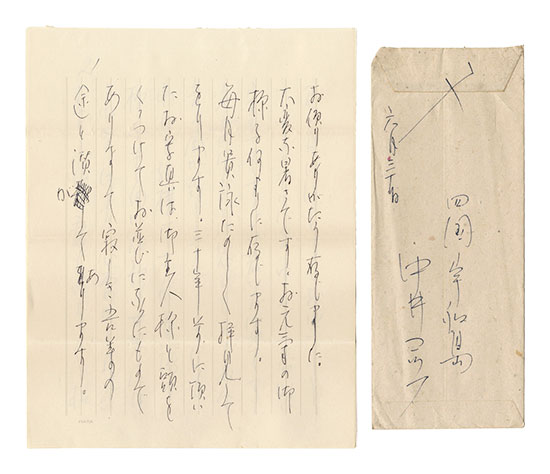 お便りありがたう存じました。
大変な暑さです。お元気の御
様子何よりに存じます。
毎月貴詠たのしく拝見して
をります。三十年前に頂い
たお写真は、御主人様と頭を
くっつけてお並びになったもので
ありまして
あります。
六月三十日
四国宇和島
中井コッフ